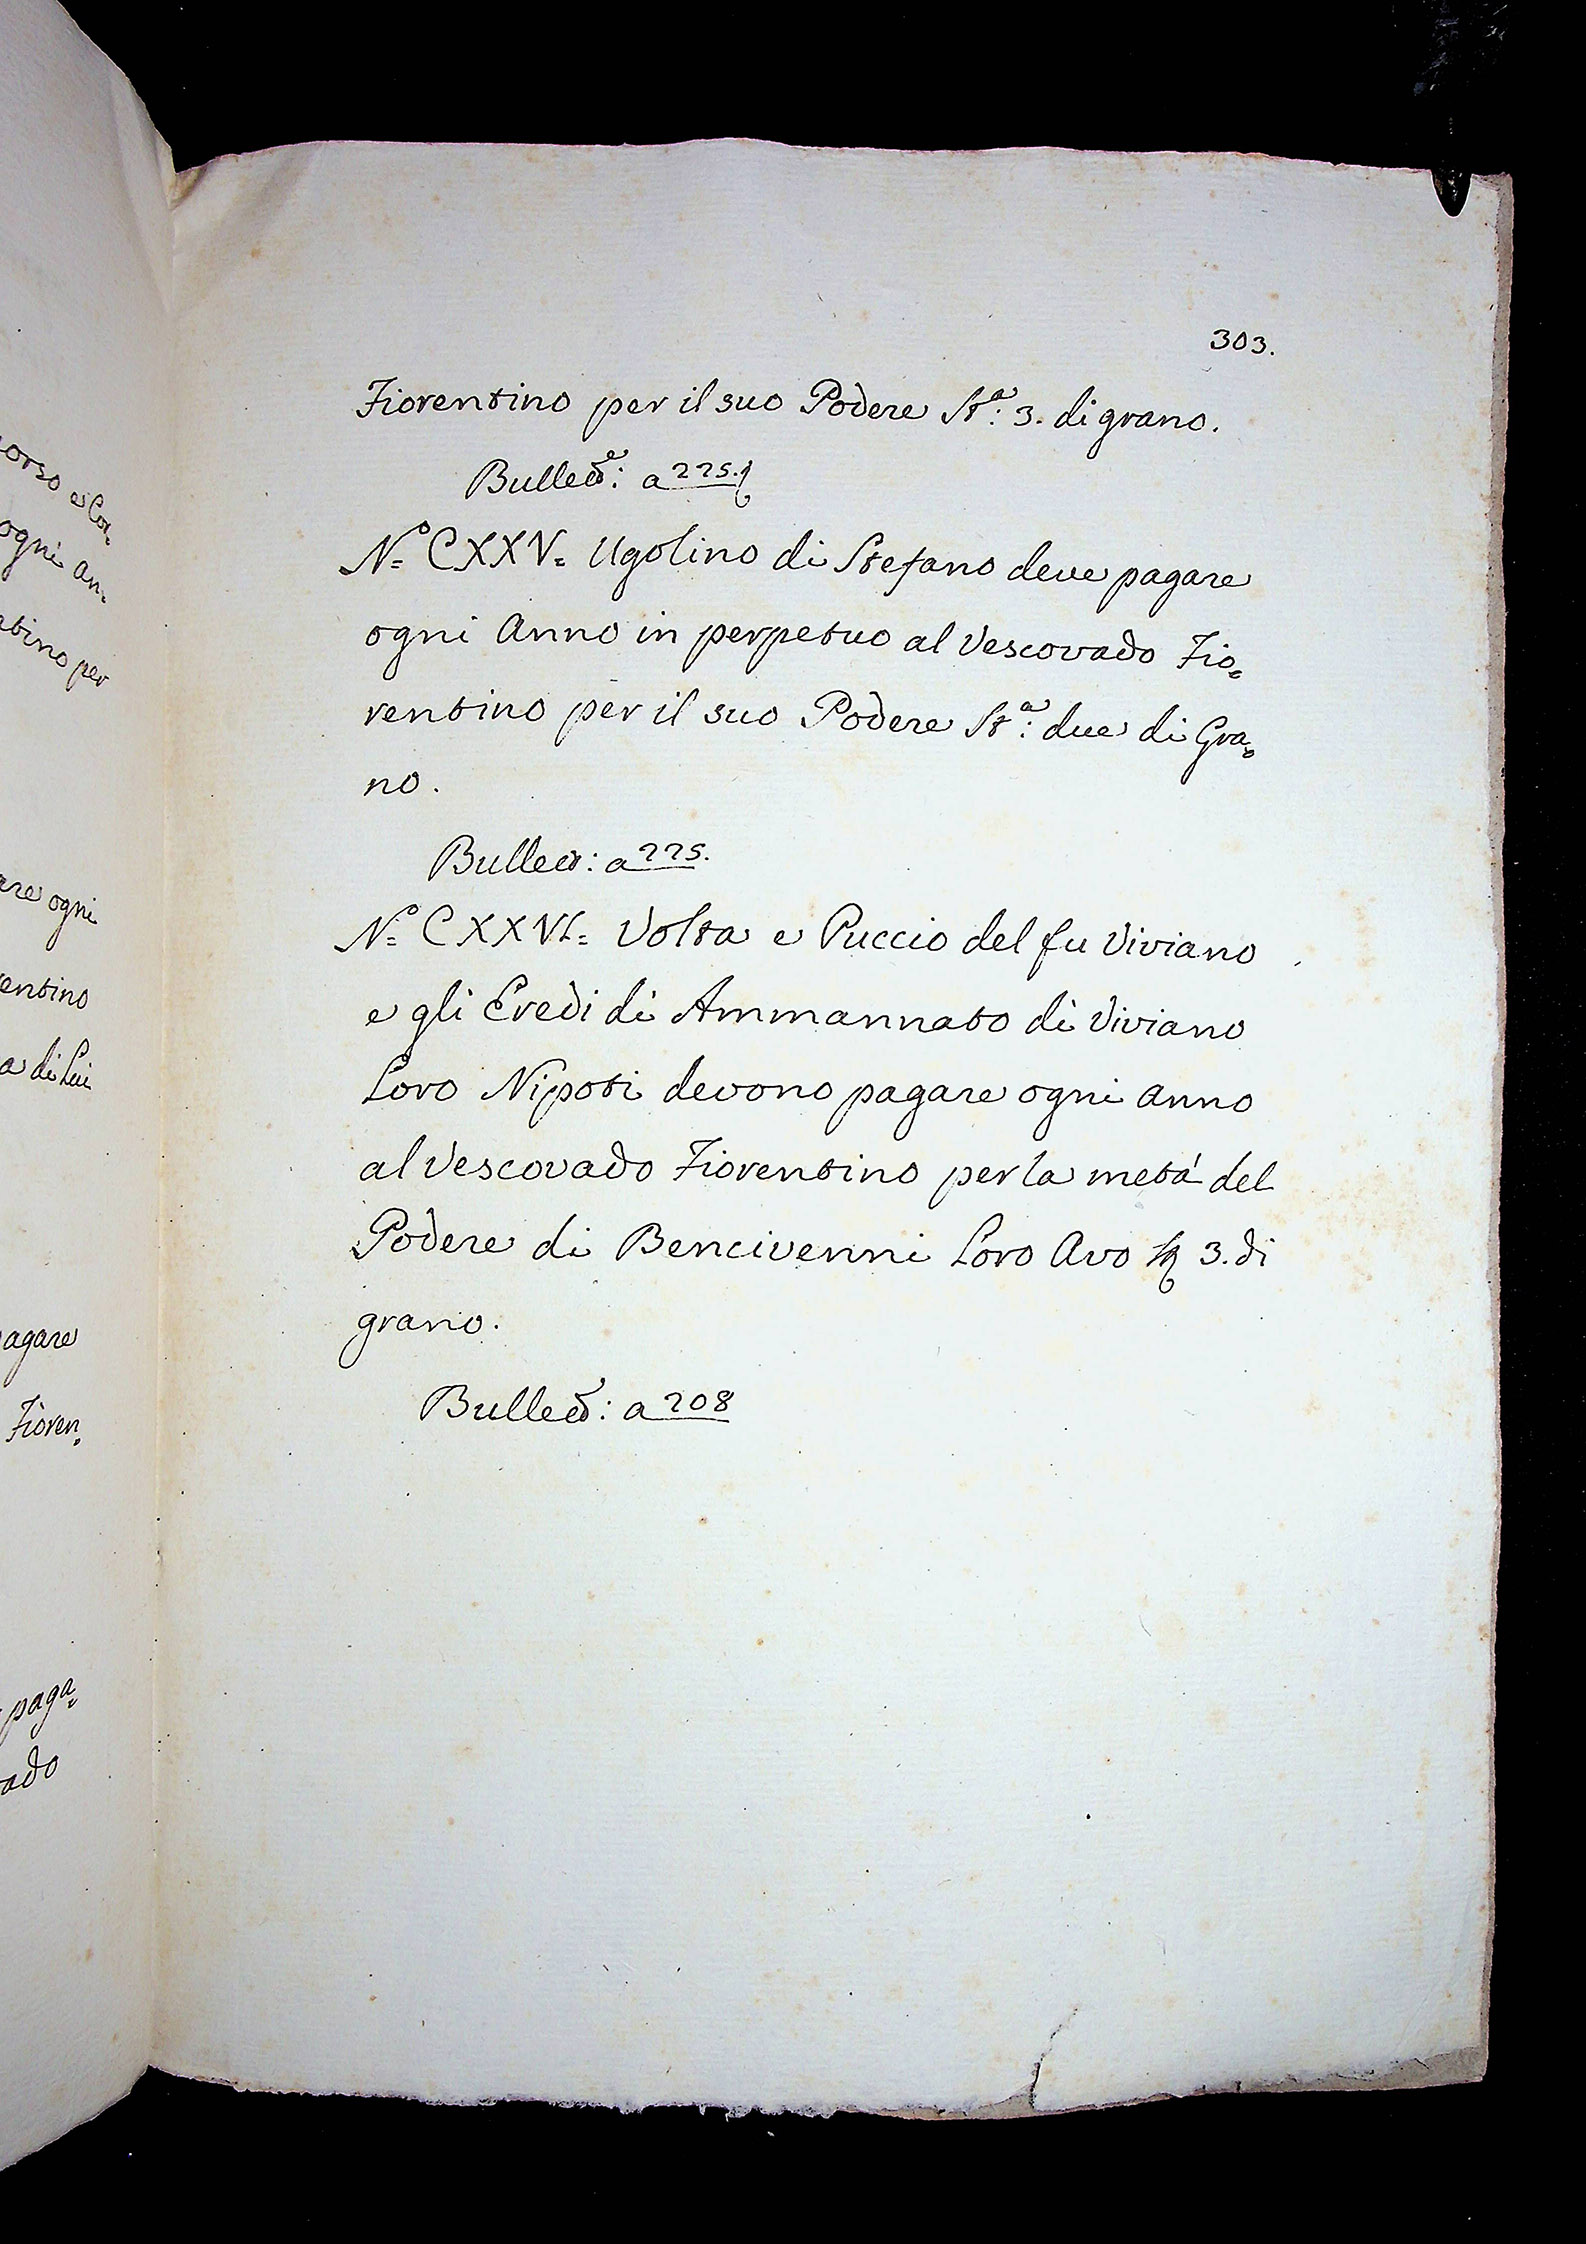 orso e Cor-
ogni an=
ntino per
are ogni
entino
a di Lui
agare
Fioren=
paga=
ado
303.
Fiorentino per il suo Podere St.ª: 3. di grano.
a 225.
Nº= CXXV= Ugolino di Stefano deve pagare
ogni Anno in perpetuo al Vescovado Fio=
rentino per il suo Podere St.ª: due di Gra=
no.
a 225.
Nº= CXXVI= Volta e Puccio del fu Viviano
e gli Eredi di Ammannato di Viviano
Loro Nipoti devono pagare ogni anno
al Vescovado Fiorentino per la metá del
Podere di Bencivenni Loro Avo 3. di
grano.
a 208